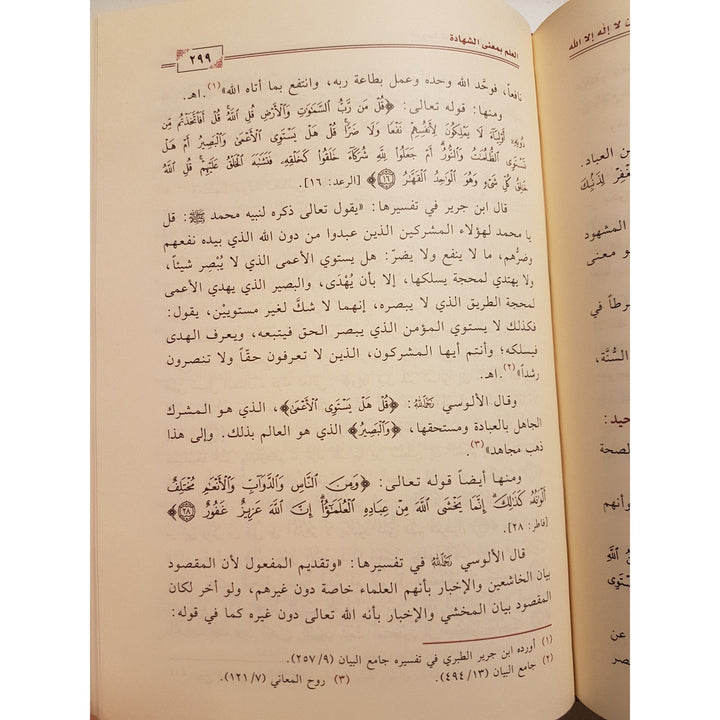 العلم بمعنى الشهادة
٢٩٩
نافعاً، فوحَّد الله وحده وعمل بطاعة ربه، وانتفع بما أتاه الله»(١). اهـ.
ومنها: قوله تعالى: ﴿قُلْ مَن رَّبُّ السَّمَٰوَٰتِ وَالْأَرْضِ قُلِ اللَّهُ ۚ قُلْ أَفَاتَّخَذْتُم مِّن
دُونِهِۦٓ أَوْلِيَآءَ لَا يَمْلِكُونَ لِأَنفُسِهِمْ نَفْعًا وَلَا ضَرًّا ۚ قُلْ هَلْ يَسْتَوِى الْأَعْمَىٰ وَالْبَصِيرُ أَمْ هَلْ
تَسْتَوِى الظُّلُمَٰتُ وَالنُّورُ ۗ أَمْ جَعَلُوا۟ لِلَّهِ شُرَكَآءَ خَلَقُوا۟ كَخَلْقِهِۦ فَتَشَٰبَهَ الْخَلْقُ عَلَيْهِمْ ۚ قُلِ اللَّهُ
خَٰلِقُ كُلِّ شَىْءٍ وَهُوَ الْوَٰحِدُ الْقَهَّٰرُ ۝١٦﴾ [الرعد: ١٦].
قال ابن جرير في تفسيرها: «يقول تعالى ذكره لنبيه محمد ﷺ: قل
يا محمد لهؤلاء المشركين الذين عبدوا من دون الله الذي بيده نفعهم
وضرُّهم، ما لا ينفع ولا يضرّ: هل يستوي الأعمى الذي لا يُبْصِر شيئاً،
ولا يهتدي لمحجة يسلكها، إلا بأن يُهْدَى، والبصير الذي يهدي الأعمى
لمحجة الطريق الذي لا يبصره، إنهما لا شكَّ لغير مستويَيْن، يقول:
فكذلك لا يستوي المؤمن الذي يبصر الحق فيتبعه، ويعرف الهدى
فيسلكه؛ وأنتم أيها المشركون، الذين لا تعرفون حقّاً ولا تنصرون
رشداً»(٢). اهـ.
وقال الألوسي رَحِمَهُ اللهُ: ﴿قُلْ هَلْ يَسْتَوِى الْأَعْمَىٰ﴾، الذي هو المشرك
الجاهل بالعبادة ومستحقها، ﴿وَالْبَصِيرُ﴾ الذي هو العالم بذلك. وإلى هذا
ذهب مجاهد»(٣).
ومنها أيضاً قوله تعالى: ﴿وَمِنَ النَّاسِ وَالدَّوَآبِّ وَالْأَنْعَٰمِ مُخْتَلِفٌ
أَلْوَٰنُهُۥ كَذَٰلِكَ ۗ إِنَّمَا يَخْشَى اللَّهَ مِنْ عِبَادِهِ الْعُلَمَٰٓؤُا۟ ۗ إِنَّ اللَّهَ عَزِيزٌ غَفُورٌ ۝٢٨﴾
[فاطر: ٢٨].
قال الألوسي رَحِمَهُ اللهُ في تفسيرها: «وتقديم المفعول لأن المقصود
بيان الخاشعين والإخبار بأنهم العلماء خاصة دون غيرهم، ولو أخر لكان
المقصود بيان المخشي والإخبار بأنه الله تعالى دون غيره كما في قوله:
(١) أورده ابن جرير الطبري في تفسيره جامع البيان (٢٥٧/٩).
(٢) جامع البيان (٤٩٤/١٣).
(٣) روح المعاني (١٢١/٧).
لا إله إلا الله
ن العباد.
المشهود
و معنى
رطاً في
السُّنَّة،
حيد:
لصحة
وأنهم
عن